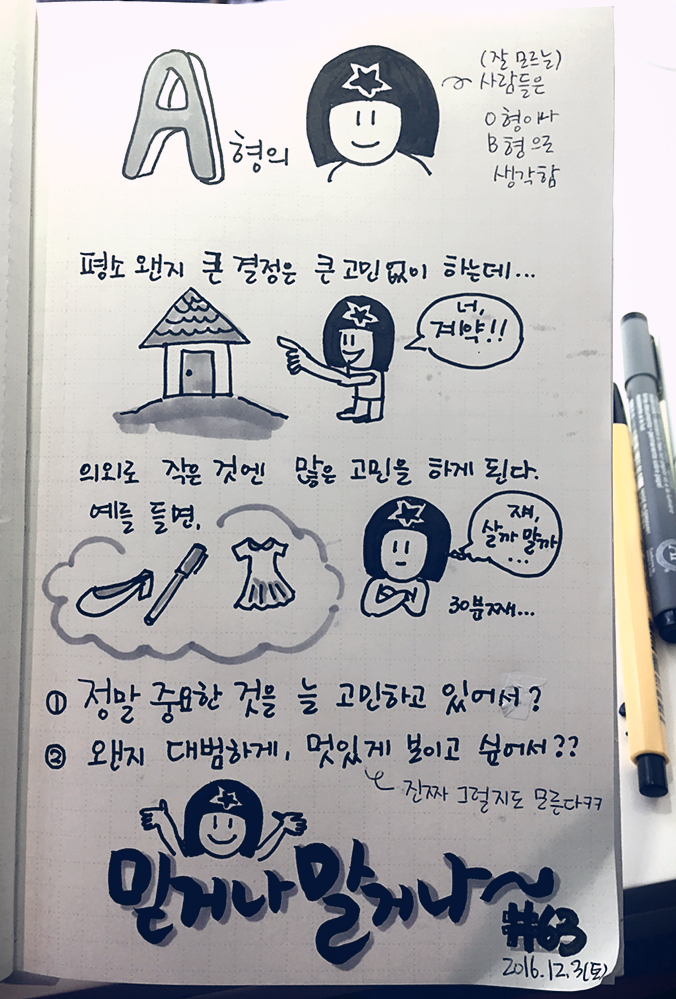 A형의
(잘 모르는)
사람들은
O형이나
B형으로
생각함
평소 왠지 큰 결정은 큰 고민 없이 하는데...
너,
계약!!
의외로 작은 것엔 많은 고민을 하게 된다.
예를 들면,
쟤,
살까 말까
...
30분째...
① 정말 중요한 것을 늘 고민하고 있어서?
② 왠지 대범하게, 멋있게 보이고 싶어서??
진짜 그럴지도 모른다ㅋㅋ
믿거나 말거나~
#63
2016.12.3(토)